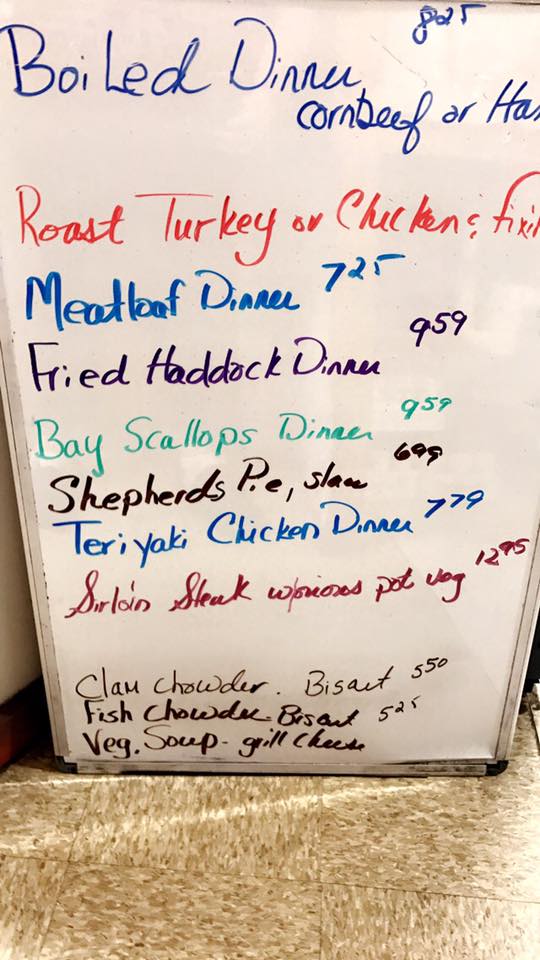 825
Boiled Dinner
cornbeef or Ha
Roast Turkey or Chicken & fixi
Meatloaf Dinner 725
Fried Haddock Dinner 959
Bay Scallops Dinner 959
Shepherds Pie, slaw 699
Teriyaki Chicken Dinner 779
Sirloin Steak w/onions pot veg 1295
Clam chowder. Biscuit 550
Fish chowder Biscuit 525
Veg. Soup - grill cheese